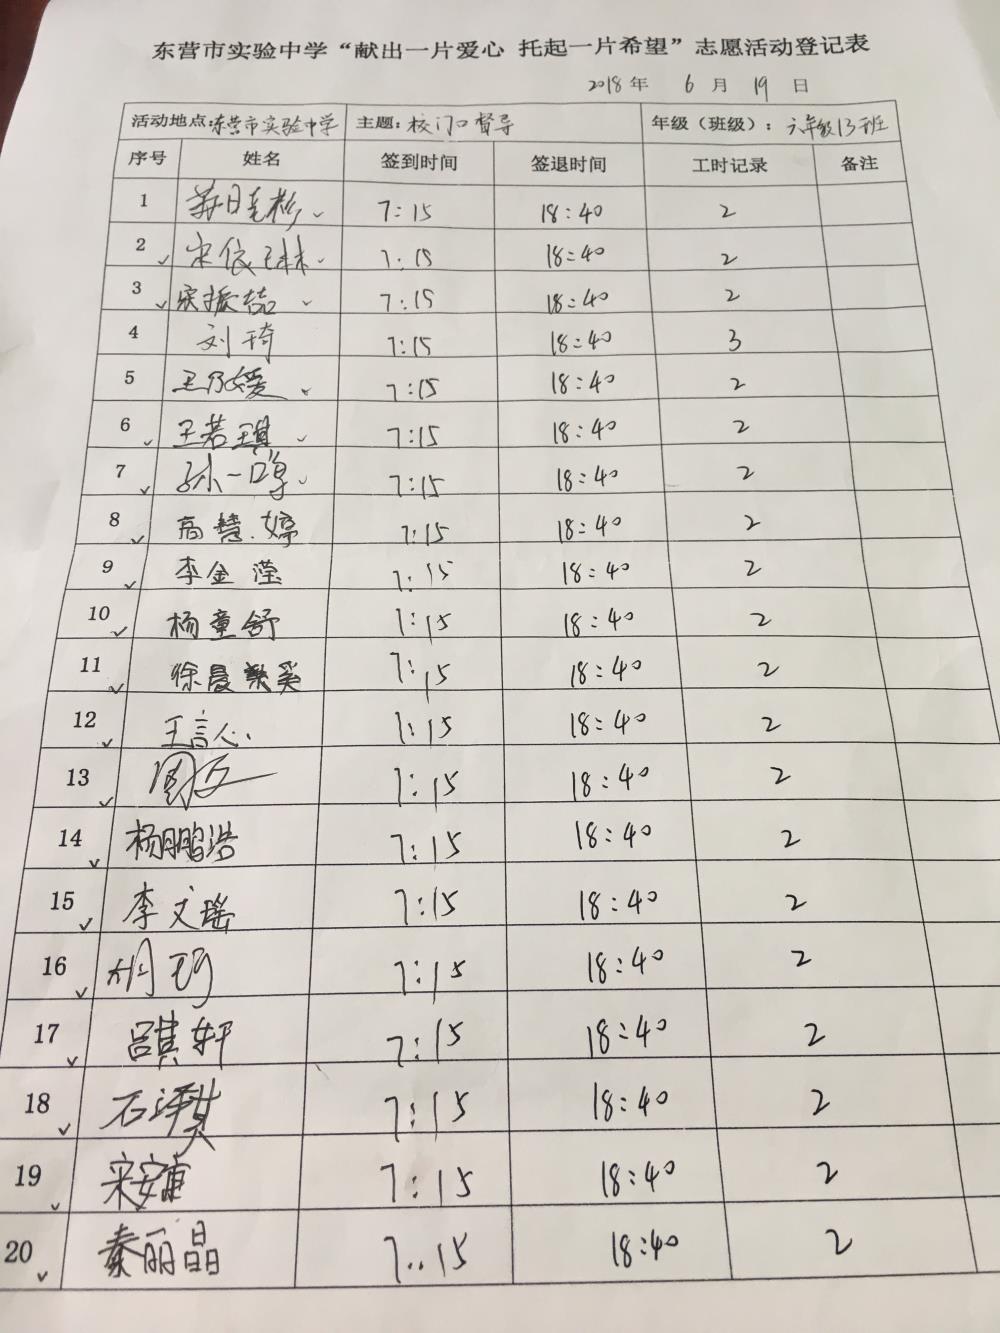 东营市实验中学“献出一片爱心 托起一片希望”志愿活动登记表
2018年 6月 19日
活动地点:东营市实验中学 主题:校门口督导 年级（班级）：六年级13班
序号 姓名 签到时间 签退时间 工时记录 备注
1 7:15 18:40 2
2 宋依琳 7:15 18:40 2
3 7:15 18:40 2
4 刘琦 7:15 18:40 3
5 王乃媛 7:15 18:40 2
6 王若琪 7:15 18:40 2
7 孙一 7:15 18:40 2
8 高慧婷 7:15 18:40 2
9 李金滢 7:15 18:40 2
10 杨童舒 7:15 18:40 2
11 徐晨 奚 7:15 18:40 2
12 王言心 7:15 18:40 2
13 7:15 18:40 2
14 杨鹏浩 7:15 18:40 2
15 李文瑶 7:15 18:40 2
16 胡 7:15 18:40 2
17 吕其轩 7:15 18:40 2
18 石泽其 7:15 18:40 2
19 宋安 7:15 18:40 2
20 秦丽晶 7:15 18:40 2